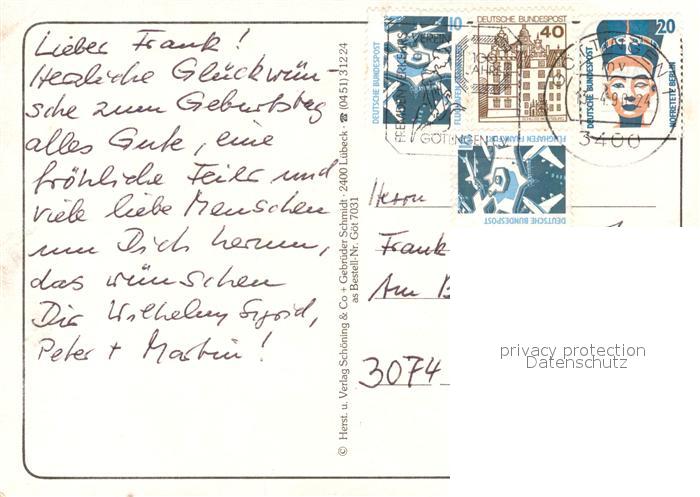 Lieber Frank!
Herzliche Glückwün-
sche zum Geburtstag
alles Gute, eine
fröhliche Feier und
viele liebe Menschen
um Dich herum,
das wünschen
Dir Wilhelm, Sigrid,
Peter + Martin!
© Herst. u. Verlag Schöning & Co + Gebrüder Schmidt · 2400 Lübeck · ☎ (04 51) 3 12 24
as Bestell-Nr. Göt 7031
Herrn
Frank
Am
3074
10
DEUTSCHE BUNDESPOST
DEUTSCHE BUNDESPOST
40
20
DEUTSCHE BUNDESPOST
NOFRETETE BERLIN
FLUGHAFEN FRANKFURT
DEUTSCHE BUNDESPOST
100
JAHRE
FREMDENVERKEHRS
GÖTTINGEN
3400
privacy protection
Datenschutz